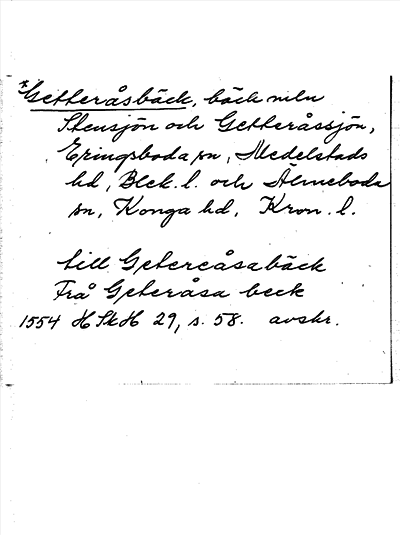 *Getteråsbäck, bäck mln
Stensjön och Getteråssjön,
Eringsboda sn, Medelstads
hd, Blek. l. och Älmeboda
sn, Konga hd, Kron. l.
till Getereåsabäck
Frå Geteråsa beck
1554 HSkH 29, s. 58. avskr.